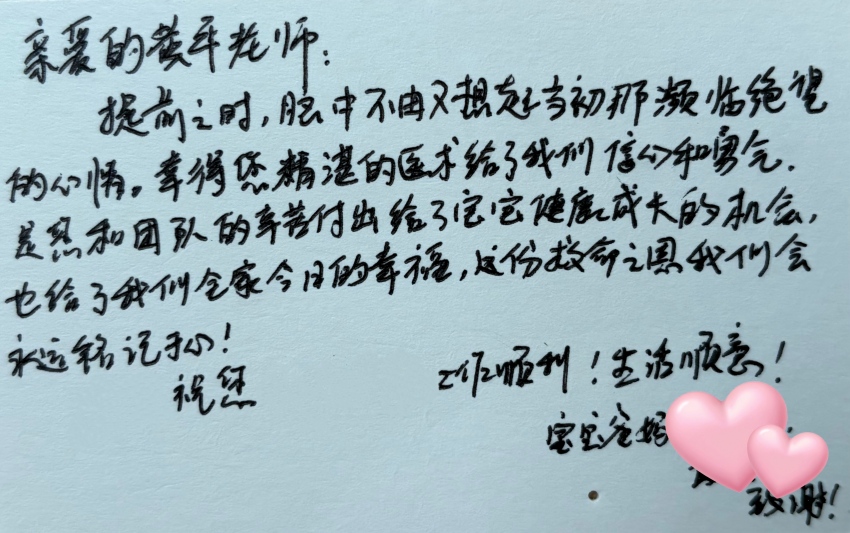 亲爱的黄平老师：
提前之时，脑中不由又想起当初那濒临绝望
的心情。幸得您精湛的医术给了我们信心和勇气．
是您和团队的辛苦付出给了宝宝健康成长的机会，
也给了我们全家今日的幸福，这份救命之恩我们会
永远铭记于心！
祝您 工作顺利！生活顺意！
宝宝爸妈
致谢！